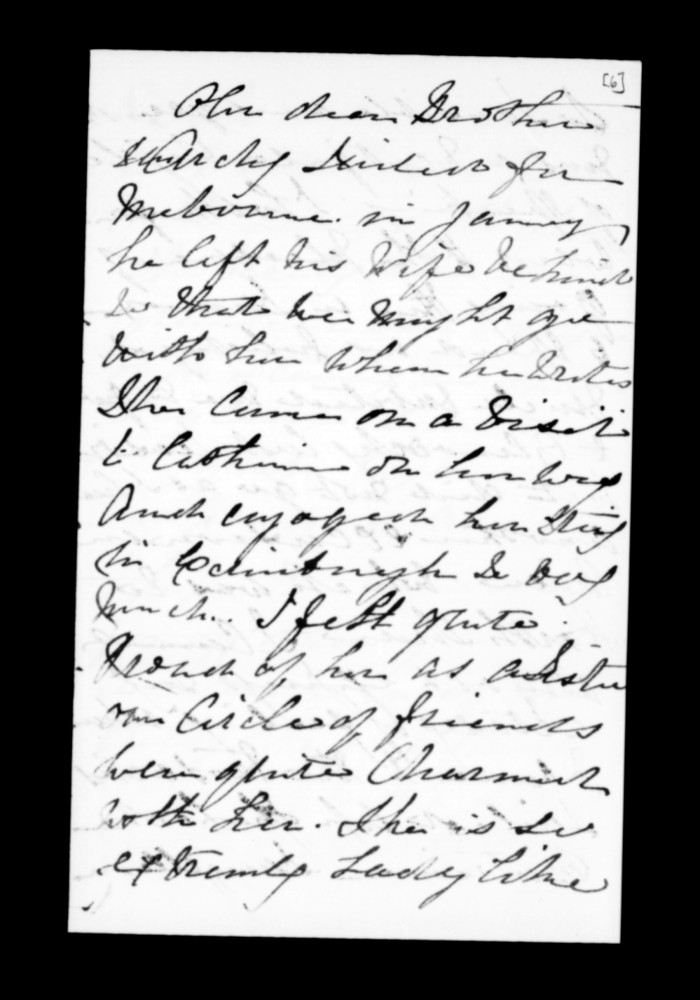 [6]
Our dear Brother
Archy sailed for
Melbourne. in January
he left his Wife behind
so that we might get
with her when he writes
She came on a Visit
to Catherine on her way
And enjoyed her Stay
in Edinburgh so very
much. I felt quite
Proud of her as a Sister
our Circle of friends
were quite Charmed
with her. She is so
extremly Lady like